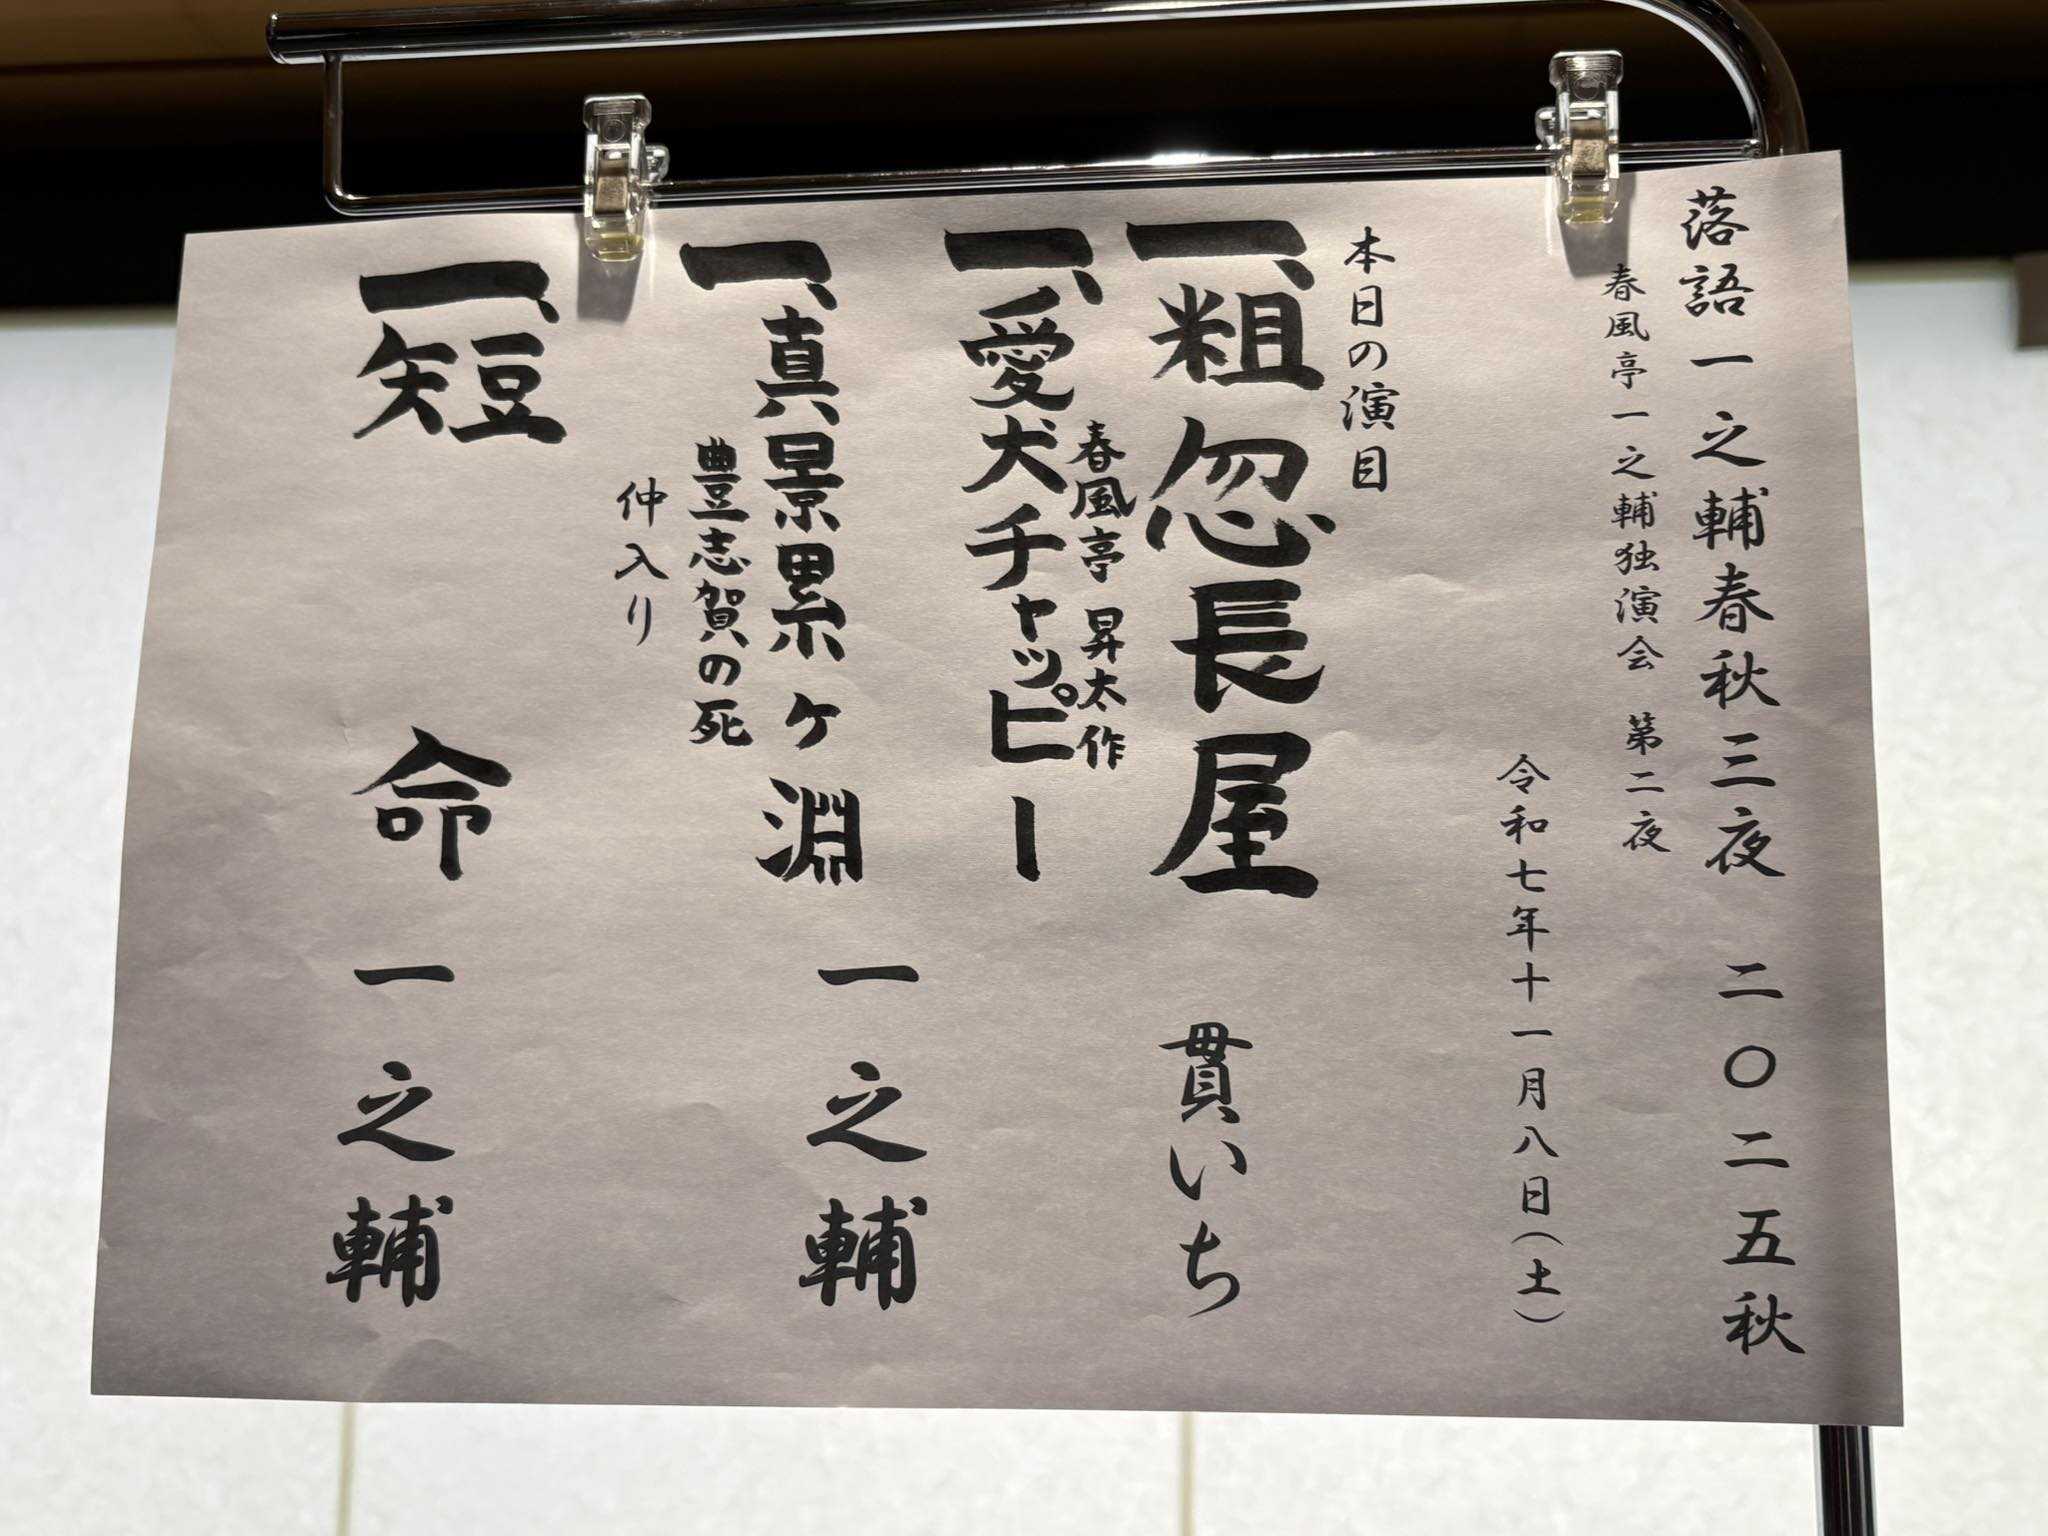 落語一之輔春秋三夜 二〇二五秋
春風亭一之輔独演会 第二夜
令和七年十一月八日(土)
本日の演目
一、粗忽長屋 貫いち
春風亭 昇太作
一、愛犬チャッピー
一、真景累ヶ淵 一之輔
豊志賀の死
仲入り
一、短命 一之輔